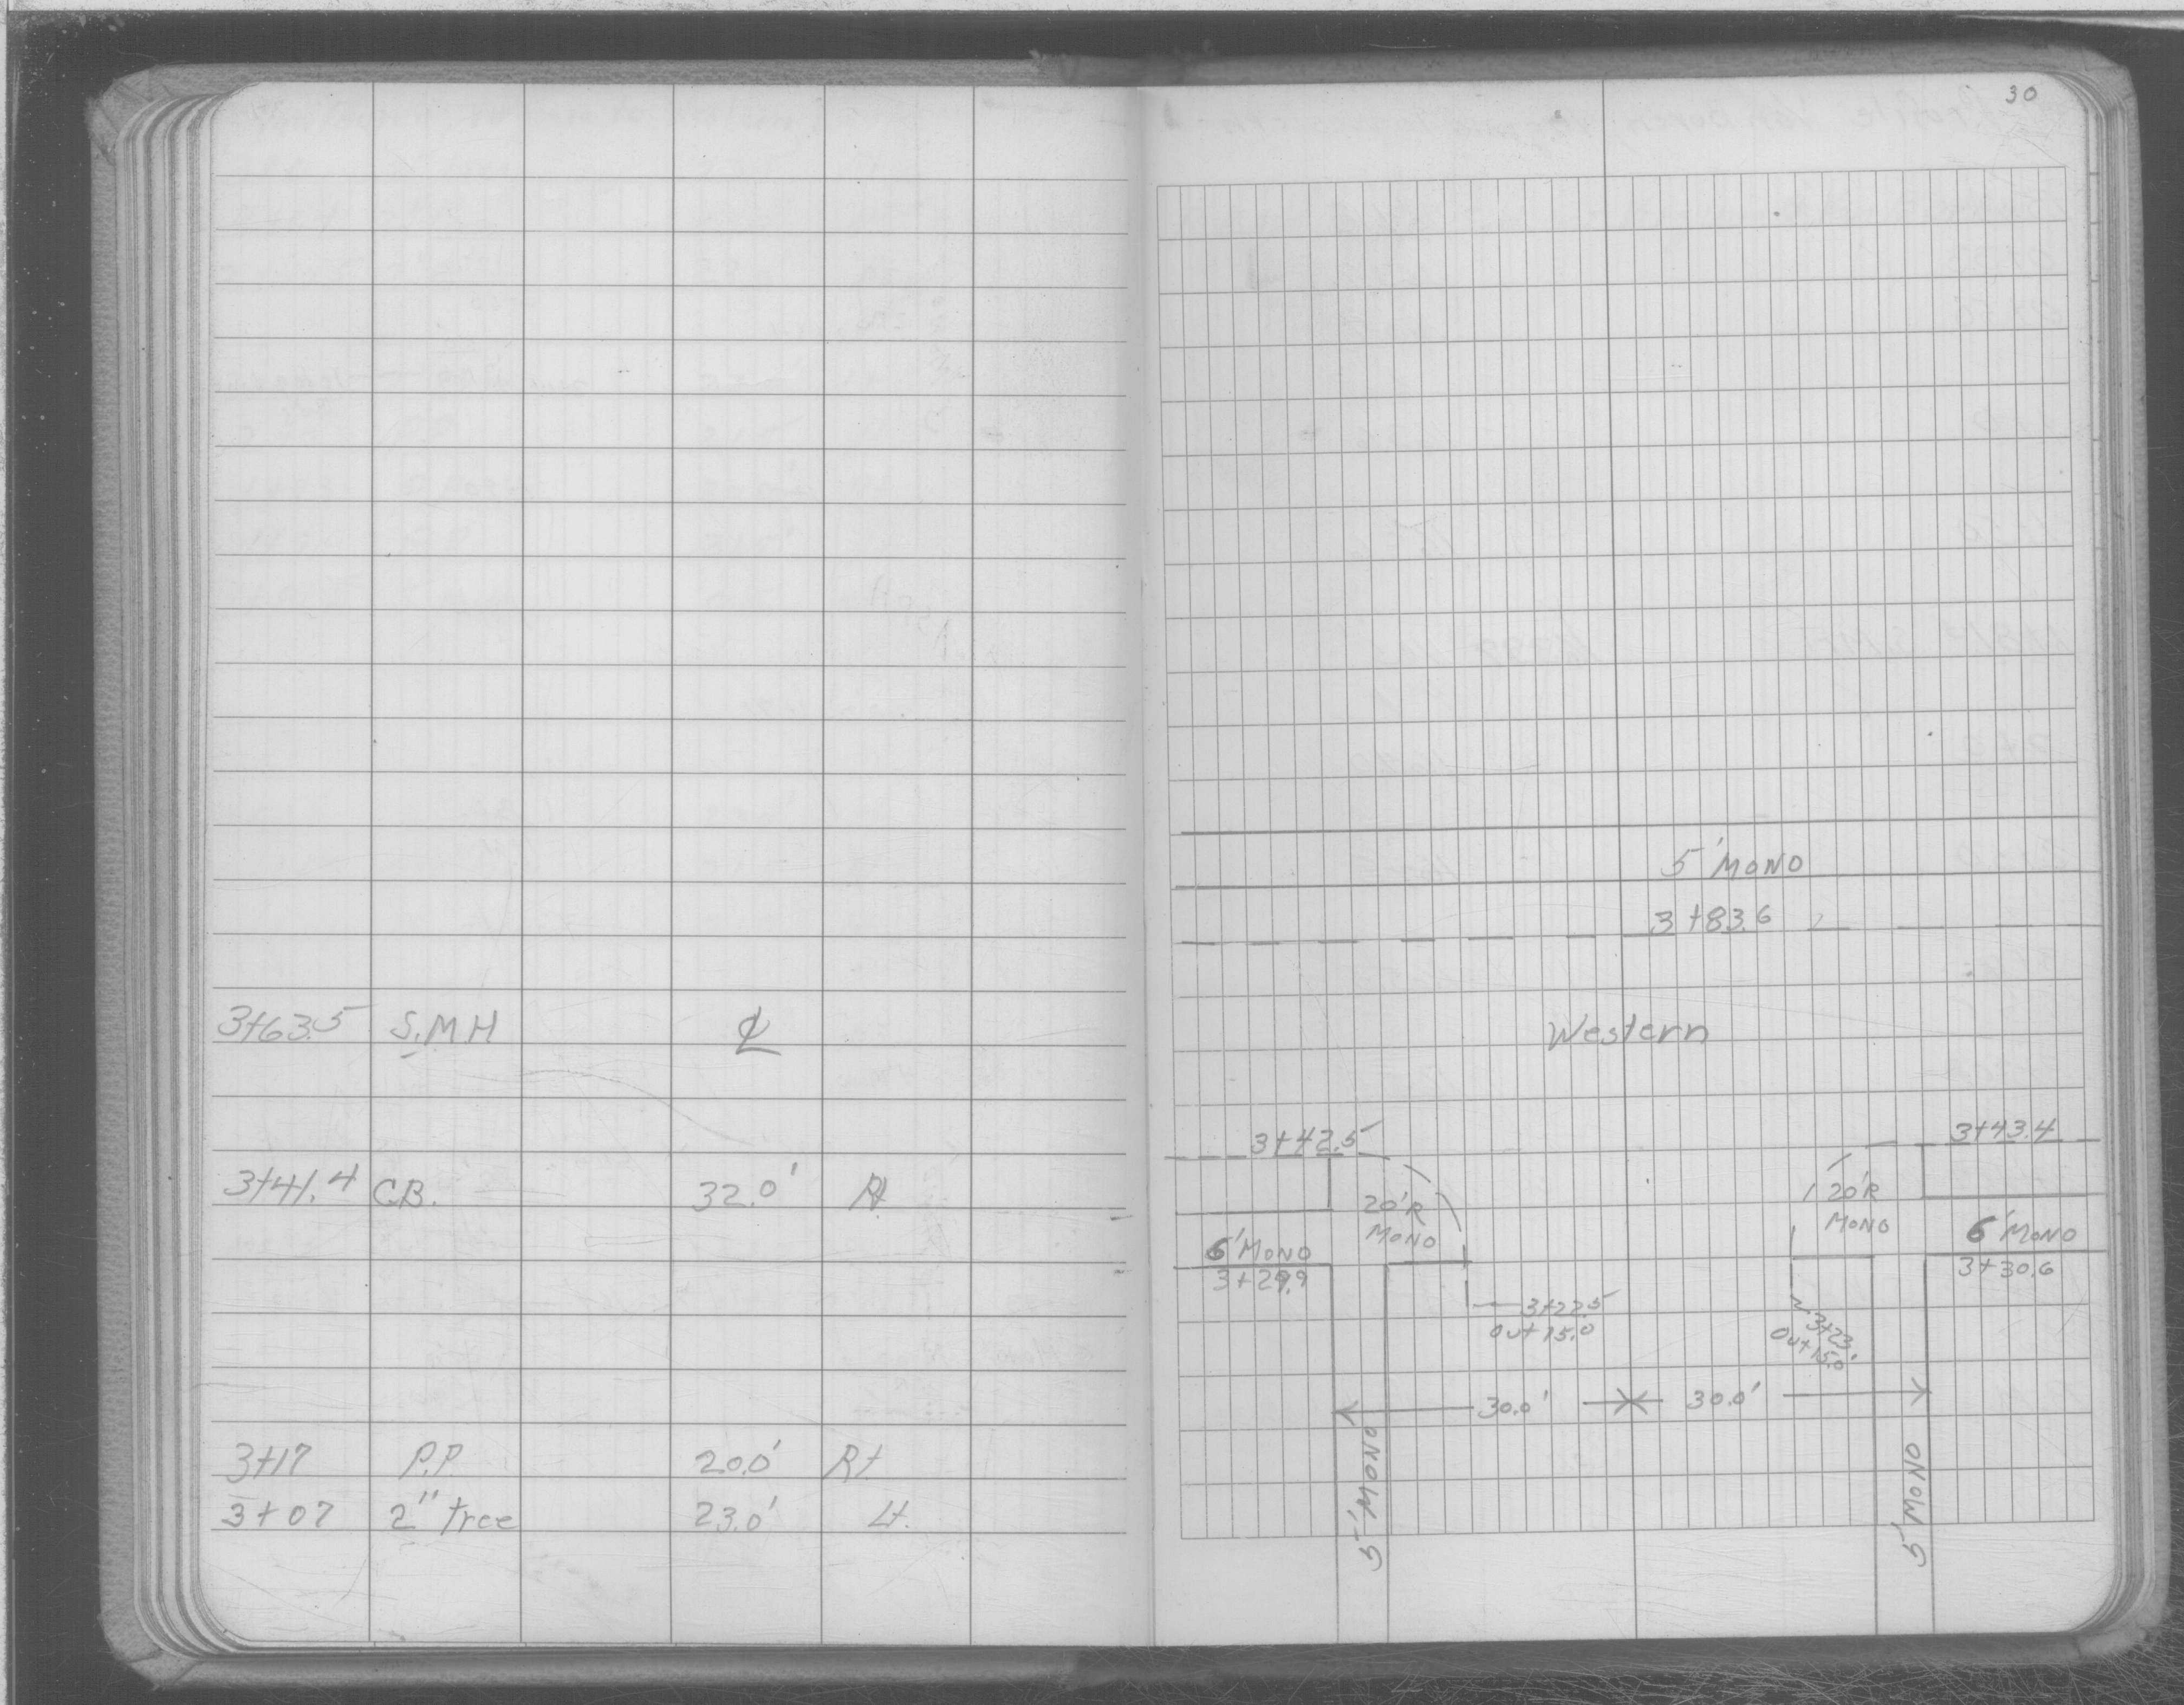 30
5' MONO
3+83.6
3+63.5 S.M.H ℄
Western
3+42.5 3+43.4
3+41.4 C.B. 32.0' Rt
20'R MONO
20'R MONO
6' MONO
3+29.9
6' MONO
3+30.6
3+22.5
Out 15.0
3+23
Out 15.0'
30.0' 30.0'
3+17 P.P. 20.0' Rt
3+07 2" tree 23.0' Lt.
5' MONO
5' MONO